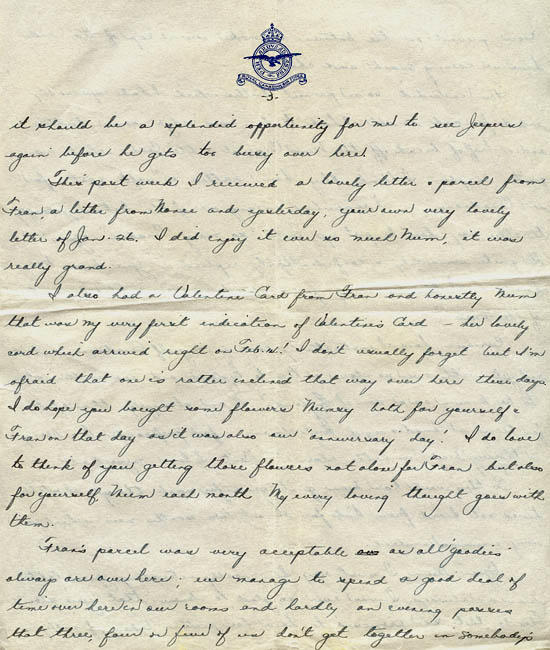 -3-
it should be a splended opportunity for me to see Jeepers
again before he gets too busy over here!
This past week I received a lovely letter & parcel from
Fran a letter from Nonie and yesterday, your own very lovely
letter of Jan. 26. I did enjoy it ever so much Mum, it was
really grand.
I also had a Valentine Card from Fran and honestly Mum
that was my very first indication of Valentine's Card – her lovely
card which arrived right on Feb. 14! I don't usually forget but I'm
afraid that one is rather inclined that way over here these days.
I do hope you bought some flowers Mumsy both for yourself &
Fran on that day as it was also our "anniversary" day! I do love
to think of you getting those flowers not alone for Fran but also
for yourself, Mum each month My every loving thought goes with
them.
Fran's parcel was very acceptable as all "goodies"
always are over here; we manage to spend a good deal of
time over here in our rooms and hardly an evening passes
that three, four or five of us don't get together in somebody's